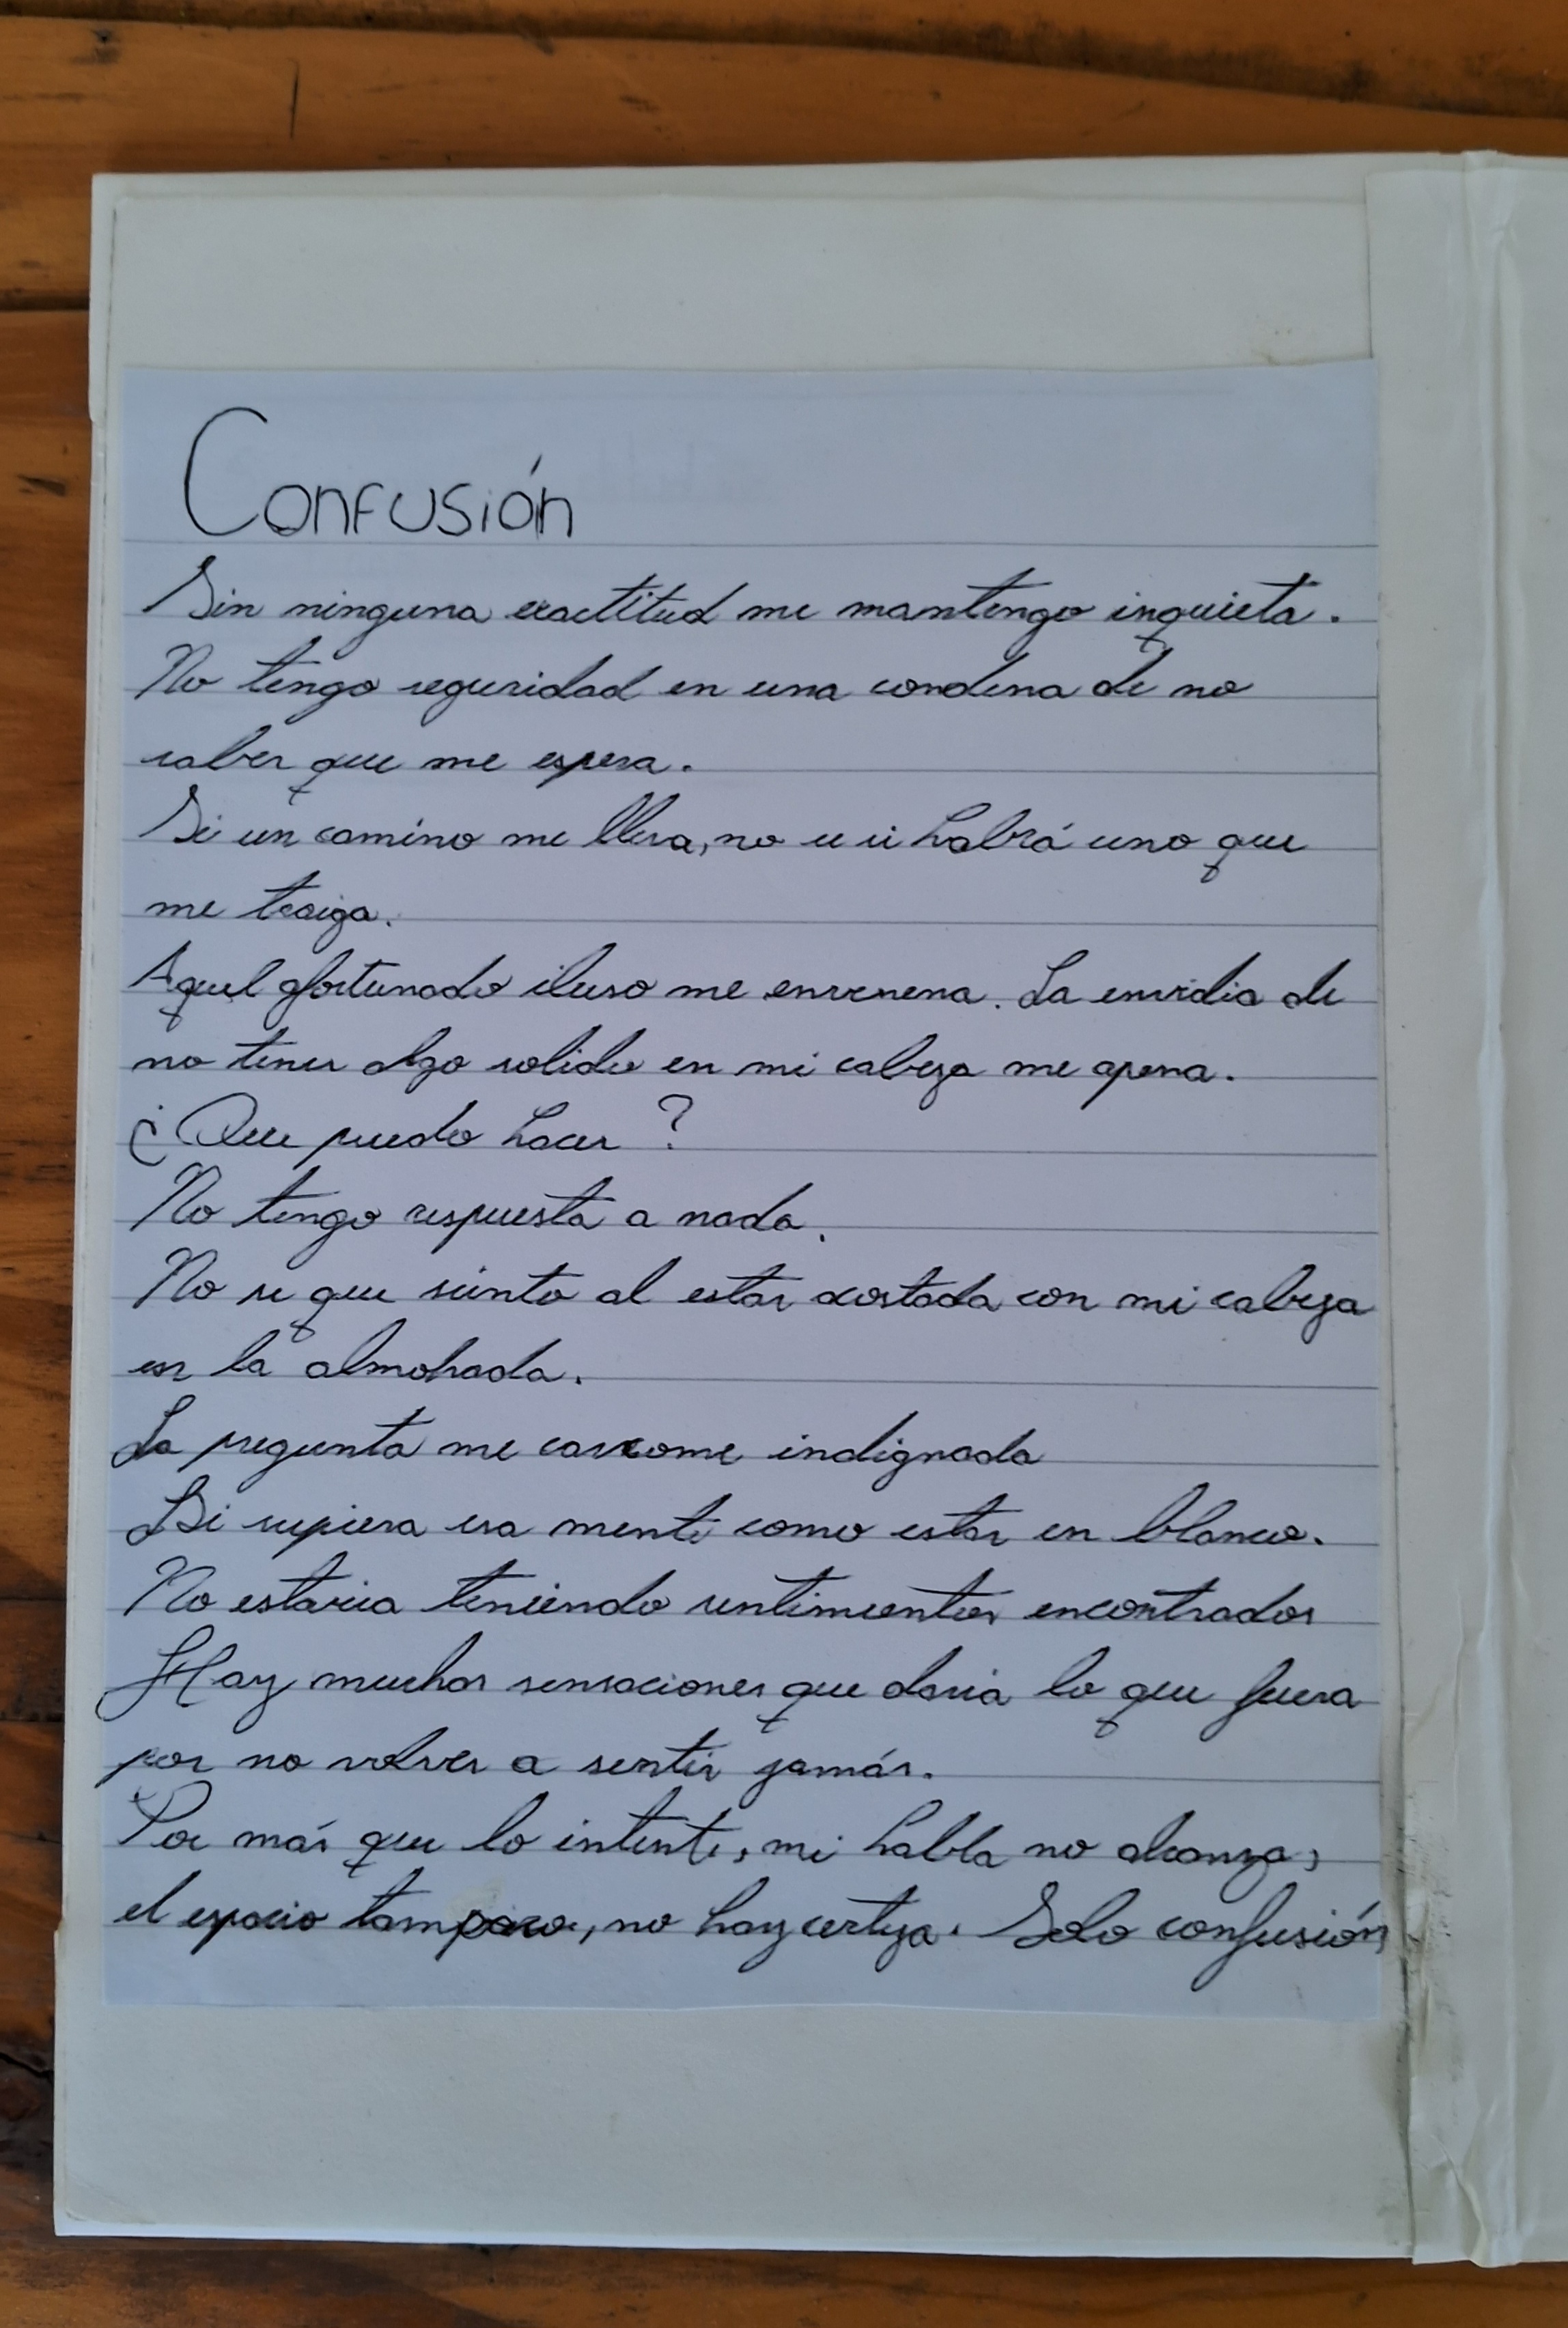 Confusión
Sin ninguna exactitud me mantengo inquieta.
No tengo seguridad en una condena de no
saber que me espera.
Si un camino me lleva, no se si habrá uno que
me traiga.
Aquel afortunado iluso me envenena. La envidia de
no tener algo solido en mi cabeza me apena.
¿Que puedo hacer?
No tengo respuesta a nada.
No se que siento al estar acostada con mi cabeza
en la almohada.
La pregunta me carcome indignada
Si supiera esa mente como estar en blanco.
No estaria teniendo sentimientos encontrados
Hay muchas sensaciones que daria lo que fuera
por no volver a sentir jamás.
Por más que lo intente, mi habla no alcanza,
el espacio tampoco, no hay certeza. Solo confusión